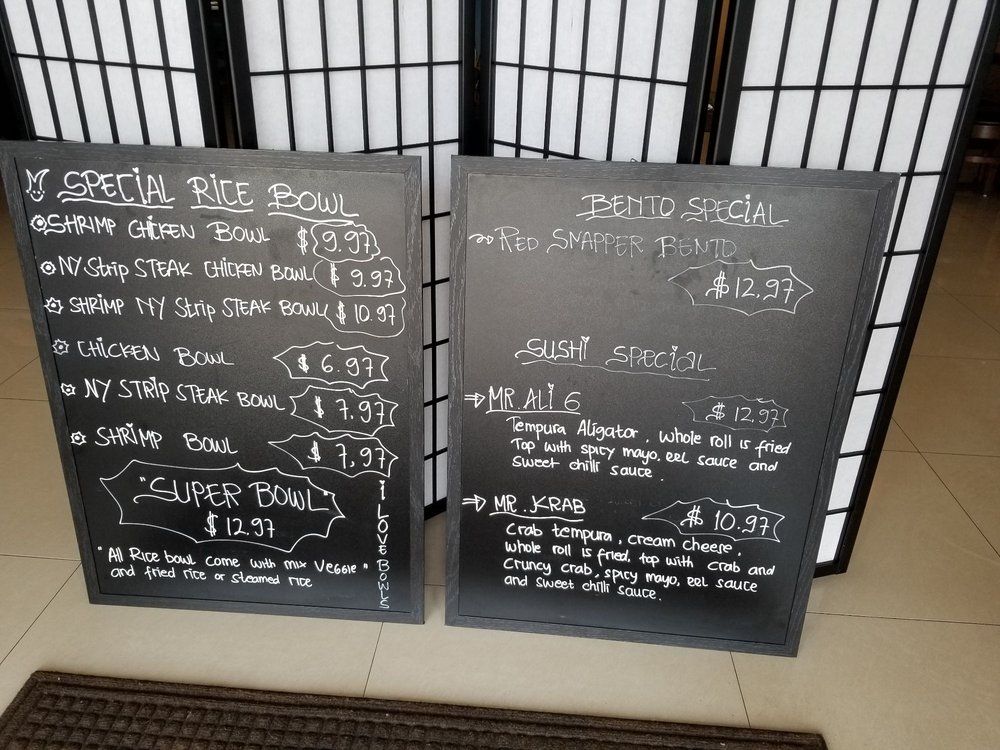 SPECIAL RICE BOWL
SHRIMP CHICKEN BOWL $ 9.97
NY Strip STEAK CHICKEN BOWL $ 9.97
SHRIMP NY Strip STEAK BOWL $ 10.97
CHICKEN BOWL $ 6.97
NY STRIP STEAK BOWL $ 7.97
SHRIMP BOWL $ 7,97
"SUPER BOWL"
$ 12.97
"All Rice bowl come with mix Veggie"
and fried rice or steamed rice
i LOVE BOWLS
BENTO SPECIAL
RED SNAPPER BENTO
$ 12,97
SUSHI SPECIAL
MR. ALI 6 $ 12,97
Tempura Aligator, whole roll is fried
Top with spicy mayo, eel sauce and
sweet chilli sauce.
MR. KRAB $ 10.97
Crab tempura, cream cheese.
whole roll is fried, top with crab and
cruncy crab, spicy mayo, eel sauce
and sweet chilli sauce.